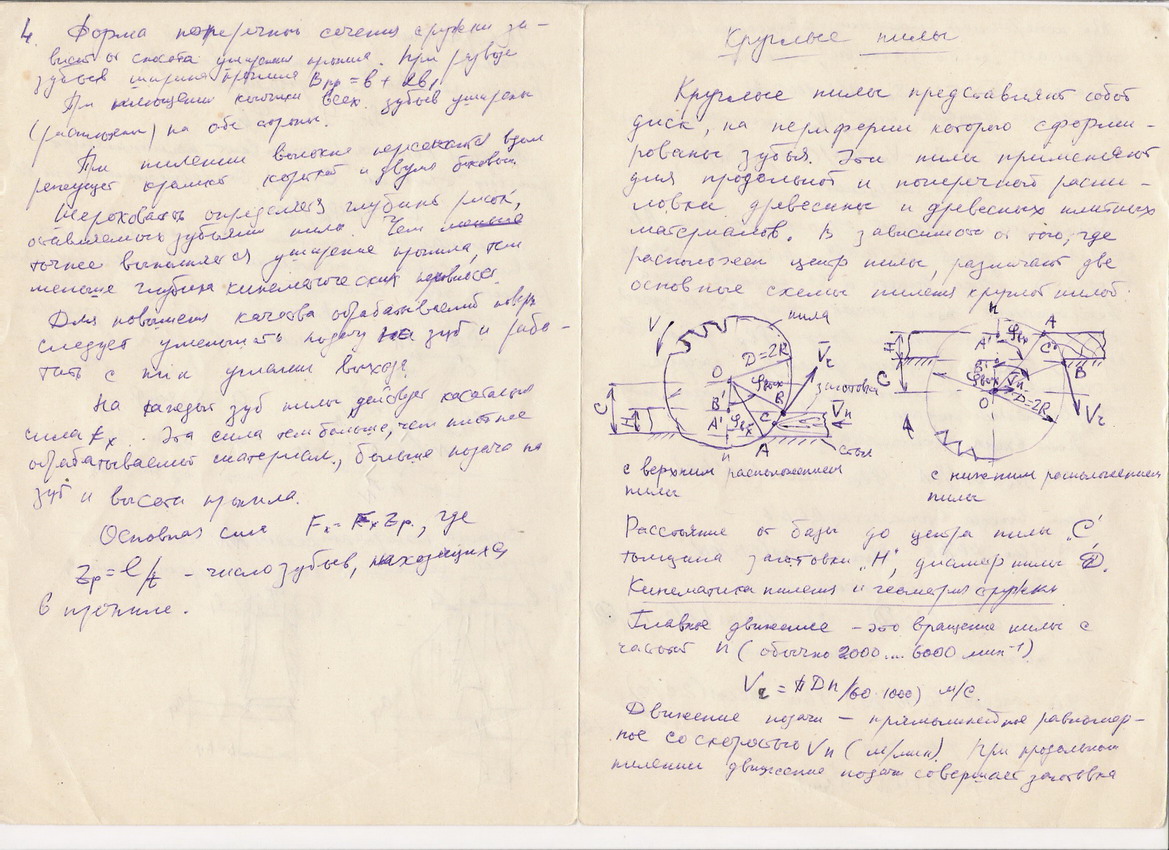 4. Форма поперечного сечения стружки за-
висит от способа уширения пропила. При разводе
зубьев ширина пропила Bпр = b + 2b,
При плющении кончики всех зубьев уширены
(расплющены) на обе стороны.
При пилении волокна перерезаются
режущей кромкой короткой и двумя боковыми.
Шероховатость определяется глубиной рисок,
оставляемых зубьями пилы. Чем
точнее выполняется уширение пропила, тем
меньше глубина кинематических неровностей.
Для повышения качества обрабатываемой поверх.
следует уменьшать подачу на зуб и рабо-
тать с углами выхода.
На каждый зуб пилы действует касательная
сила Fx. Эта сила тем больше, чем плотнее
обрабатываемый материал, больше подача на
зуб и высота пропила.
Основная сила Fx = Fx Zp, где
Zp = l/t – число зубьев, находящихся
в пропиле.
Круглые пилы
Круглые пилы представляют собой
диск, на периферии которого сформи-
рованы зубья. Эти пилы применяют
для продольной и поперечной распи-
ловки древесины и древесных плитных
материалов. В зависимости от того, где
расположен центр пилы, различают две
основные схемы пиления круглой пилой.
V
пила
D=2R
Vr
O
φвых
заготовка
B'
B
C
H
A'
φвх
C
Vп
A
стол
n
с верхним расположением
пилы
n
A
H
A'
φвх
C'
C
B'
B
φвых
Vп
O
D=2R
Vr
с нижним расположением
пилы
Расстояние от базы до центра пилы „C",
толщина заготовки „H", диаметр пилы D.
Кинематика пиления и геометрия стружки
Главное движение – это вращение пилы с
частотой n (обычно 2000 ... 6000 мин⁻¹)
Vг = πDn/60·1000) м/с.
Движение подачи – прямолинейное равномер-
ное со скоростью Vп (м/мин). При продольном
пилении движение подачи совершает заготовка